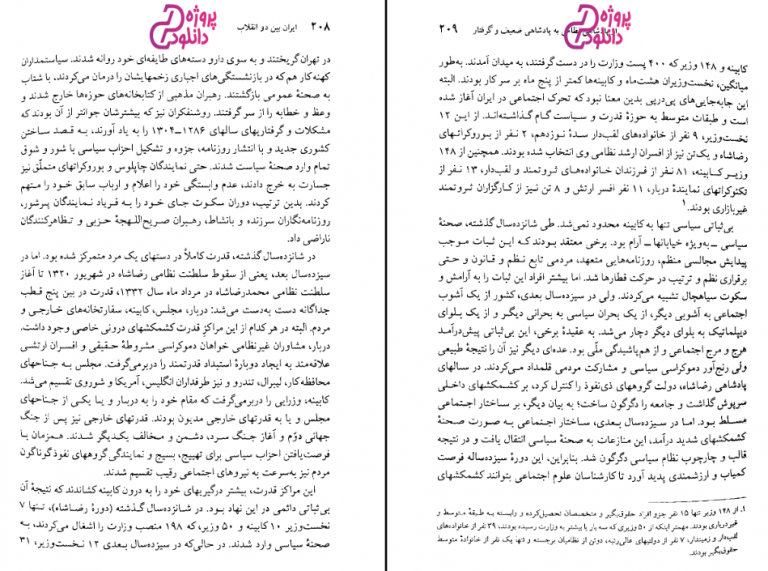 ۲۰۸ ایران بین دو انقلاب
پروژه
دانلود
در تهران گریختند و به سوی دارو دسته‌های طایفه‌ای خود روانه شدند. سیاستمداران
کهنه‌کار هم که در بازنشستگی‌های اجباری زخمهایشان را درمان می‌کردند، با شتاب
به صحنهٔ عمومی بازگشتند. رهبران مذهبی از کتابخانه‌های حوزه‌ها خارج شدند و
وعظ و خطابه را از سر گرفتند. روشنفکران نیز که بیشترشان جوانتر از آن بودند که
مشکلات و گرفتاریهای سالهای ۱۲۸۶-۱۳۰۴ را به یاد آورند، به قصد ساختن
کشوری جدید و با انتشار روزنامه، جزوه و تشکیل احزاب سیاسی با شور و شوق
تمام وارد صحنهٔ سیاست شدند. حتی نمایندگان چاپلوس و بوروکراتهای متملّق نیز
جسارت به خرج دادند، عدم وابستگی خود را اعلام و ارباب سابق خود را متهم
کردند. بدین ترتیب، دوران سکوت جای خود را به فریاد نمایندگان پرشور،
روزنامه‌نگاران سرزنده و بانشاط، رهبران صریح‌اللهجهٔ حزبی و تظاهرکنندگان
ناراضی داد.
در شانزده‌سال گذشته، قدرت کاملاً در دستهای یک مرد متمرکز شده بود. اما در
سیزده‌سال بعد، یعنی از سقوط سلطنت نظامی رضاشاه در شهریور ۱۳۲۰ تا آغاز
سلطنت نظامی محمدرضاشاه در مرداد ماه سال ۱۳۳۲، قدرت در بین پنج قطب
جداگانه دست به‌دست می‌شد: دربار، مجلس، کابینه، سفارتخانه‌های خارجی و
مردم. البته در هر کدام از این مراکز قدرت کشمکشهای درونی خاصی وجود داشت.
دربار، مشاوران غیرنظامی خواهان دموکراسی مشروطهٔ حقیقی و افسران ارتشی
علاقه‌مند به ایجاد دوبارهٔ استبداد قدرتمند را دربرمی‌گرفت. مجلس به جناحهای
محافظه‌کار، لیبرال، تندرو و نیز طرفداران انگلیس، آمریکا و شوروی تقسیم می‌شد.
کابینه، وزرایی را دربرمی‌گرفت که مقام خود را به دربار و یا یکی از جناحهای
مجلس و یا به قدرتهای خارجی مدیون بودند. قدرتهای خارجی نیز پس از جنگ
جهانی دوّم و آغاز جنگ سرد، دشمن و مخالف یکدیگر شدند. همزمان با
فرصت‌یافتن احزاب سیاسی برای تهییج، بسیج و نمایندگی گروههای نفوذ گوناگون
مردم نیز به‌سرعت به نیروهای اجتماعی رقیب تقسیم شدند.
این مراکز قدرت، بیشتر درگیریهای خود را به درون کابینه کشاندند که نتیجهٔ آن
بی‌ثباتی دائمی در این نهاد بود. در شانزده‌سال گذشته (دورهٔ رضاشاه)، تنها ۷
نخست‌وزیر ۱۰ کابینه و ۵۰ وزیر، که ۱۹۸ منصب وزارت را اشغال می‌کردند، به
صحنهٔ سیاسی وارد شدند. در حالی‌که در سیزده‌سال بعدی ۱۲ نخست‌وزیر، ۳۱
به پادشاهی ضعیف و گرفتار ۲۰۹
پروژه
دانلود
کابینه و ۱۴۸ وزیر که ۴۰۰ پست وزارت را در دست گرفتند، به میدان آمدند. به‌طور
میانگین، نخست‌وزیران هشت‌ماه و کابینه‌ها کمتر از پنج ماه بر سر کار بودند. البته
این جابه‌جایی‌های پی‌درپی بدین معنا نبود که تحرک اجتماعی در ایران آغاز شده
است و طبقات متوسط به حوزهٔ قدرت و سیاست گام گذاشته‌اند. از این ۱۲
نخست‌وزیر، ۹ نفر از خانواده‌های لقب‌دار سدهٔ نوزدهم، ۲ نفر از بوروکراتهای
رضاشاه و یک‌تن نیز از افسران ارشد نظامی وی انتخاب شده بودند. همچنین از ۱۴۸
وزیر کابینه، ۸۱ نفر از فرزندان خانواده‌های ثروتمند و لقب‌دار، ۱۳ نفر از
تکنوکراتهای نمایندهٔ دربار، ۱۱ نفر افسر ارتش و ۸ تن نیز از کارگزاران ثروتمند
غیربازاری بودند.۱
بی‌ثباتی سیاسی تنها به کابینه محدود نمی‌شد. طی شانزده‌سال گذشته، صحنهٔ
سیاسی ـ به‌ویژه خیابانها ـ آرام بود. برخی معتقد بودند که این ثبات موجب
پیدایش مجالسی منظم، روزنامه‌هایی متعهد، مردمی تابع نظم و قانون و حتی
برقراری نظم و ترتیب در حرکت قطارها شد. اما بیشتر افراد این ثبات را به آرامش و
سکوت سیاهچال تشبیه می‌کردند. ولی در سیزده‌سال بعدی، کشور از یک آشوب
اجتماعی به آشوبی دیگر، از یک بحران سیاسی به بحرانی دیگر و از یک بلوای
دیپلماتیک به بلوای دیگر دچار می‌شد. به عقیدهٔ برخی، این بی‌ثباتی پیش‌درآمد
هرج و مرج اجتماعی و از هم‌پاشیدگی ملّی بود. عده‌ای دیگر نیز آن را نتیجهٔ طبیعی
ولی رنج‌آور دموکراسی سیاسی و مشارکت مردمی قلمداد می‌کردند. در سالهای
پادشاهی رضاشاه، دولت گروههای ذی‌نفوذ را کنترل کرد، بر کشمکشهای داخلی
سرپوش گذاشت و جامعه را دگرگون ساخت؛ به بیان دیگر، بر ساختار اجتماعی
مسلط بود. اما در سیزده‌سال بعدی، ساختار اجتماعی به صورت صحنهٔ
کشمکشهای شدید درآمد، این منازعات به صحنهٔ سیاسی انتقال یافت و در نتیجه
قالب و چارچوب نظام سیاسی دگرگون شد. بنابراین، این دورهٔ سیزده‌ساله فرصت
کمیاب و ارزشمندی پدید آورد تا کارشناسان علوم اجتماعی بتوانند کشمکشهای
۱. از ۱۴۸ وزیر تنها ۱۵ نفر جزو افراد حقوق‌بگیر و متخصصان تحصیل‌کرده و وابسته به طبقهٔ متوسط و
غیردرباری بودند. مهمتر اینکه از ۵۰ وزیری که سه بار یا بیشتر به وزارت رسیده بودند، ۳۹ نفر از خانواده‌های
لقب‌دار و زمیندار، ۷ نفر از دولتیهای عالی‌رتبه، دوتن از نظامیان برجسته و تنها یک نفر از خانوادهٔ متوسط
حقوق‌بگیر بودند.